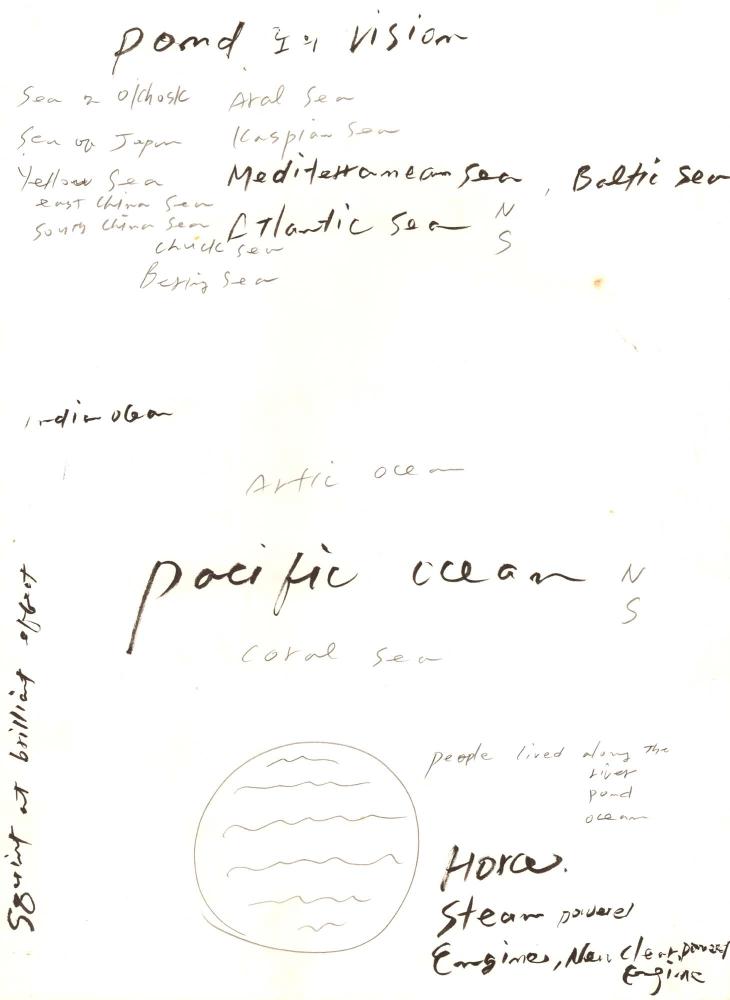 pond 로의 vision
Sea of O/chosk Aral Sea
Sea of Japan Kaspian Sea
Yellow Sea Mediterranean Sea, Baltic Sea
east China Sea
South China Sea Atlantic Sea N S
Sea
Bering Sea
india ocean
Artic ocean
pacific ocean N S
Coral Sea
at brilliant effect
people lived along the
river
pond
ocean
Horce.
Steam powered
Engines, Nuclear powered
Engine